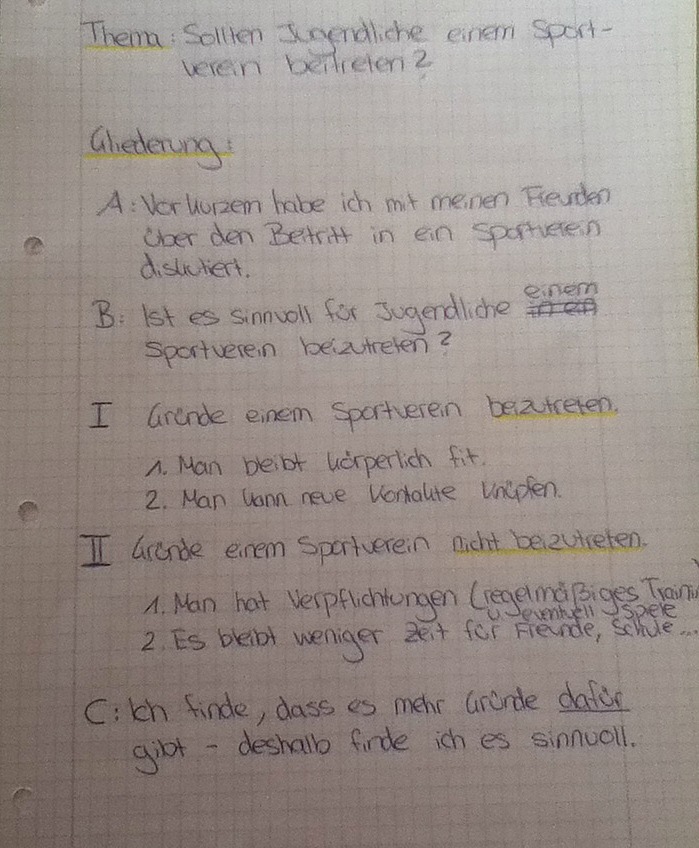 Thema: Sollten Jugendliche einem Sport-
verein beitreten?
Gliederung:
A: Vor kurzem habe ich mit meinen Freunden
über den Beitritt in ein Sportverein
diskutiert.
B: Ist es sinnvoll für Jugendliche einem
Sportverein beizutreten?
I Gründe einem Sportverein beizutreten.
1. Man bleibt körperlich fit.
2. Man kann neue Kontakte knüpfen.
II Gründe einem Sportverein nicht beizutreten.
1. Man hat Verpflichtungen (regelmäßiges Train
u. eventuell Spiele
2. Es bleibt weniger Zeit für Freunde, Schule...
C: Ich finde, dass es mehr Gründe dafür
gibt - deshalb finde ich es sinnvoll.